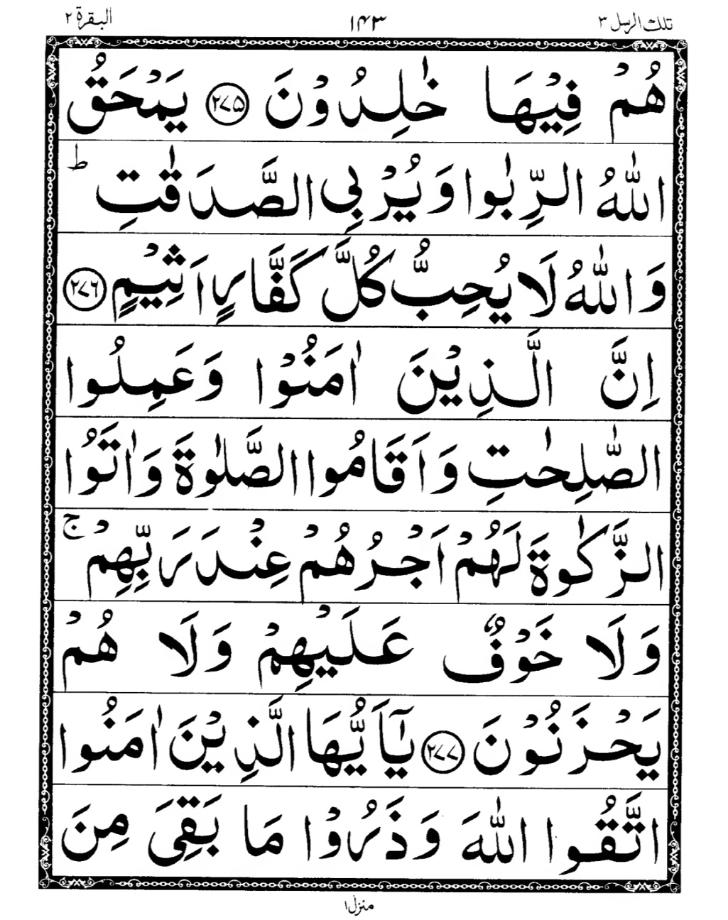 تلك الرسل ۳ ۱۴۳ البقرة ۲
هُمْ فِيْهَا خٰلِدُوْنَ ﴿۲۷۵﴾ يَمْحَقُ
اللّٰهُ الرِّبٰوا وَيُرْبِى الصَّدَقٰتِ ؕ
وَاللّٰهُ لَا يُحِبُّ كُلَّ كَفَّارٍ اَثِيْمٍ ﴿۲۷۶﴾
اِنَّ الَّذِيْنَ اٰمَنُوْا وَعَمِلُوا
الصّٰلِحٰتِ وَاَقَامُوا الصَّلٰوةَ وَاٰتَوُا
الزَّكٰوةَ لَهُمْ اَجْرُهُمْ عِنْدَ رَبِّهِمْ ۚ
وَلَا خَوْفٌ عَلَيْهِمْ وَلَا هُمْ
يَحْزَنُوْنَ ﴿۲۷۷﴾ يٰۤاَيُّهَا الَّذِيْنَ اٰمَنُوا
اتَّقُوا اللّٰهَ وَذَرُوْا مَا بَقِىَ مِنَ
منزل ۱